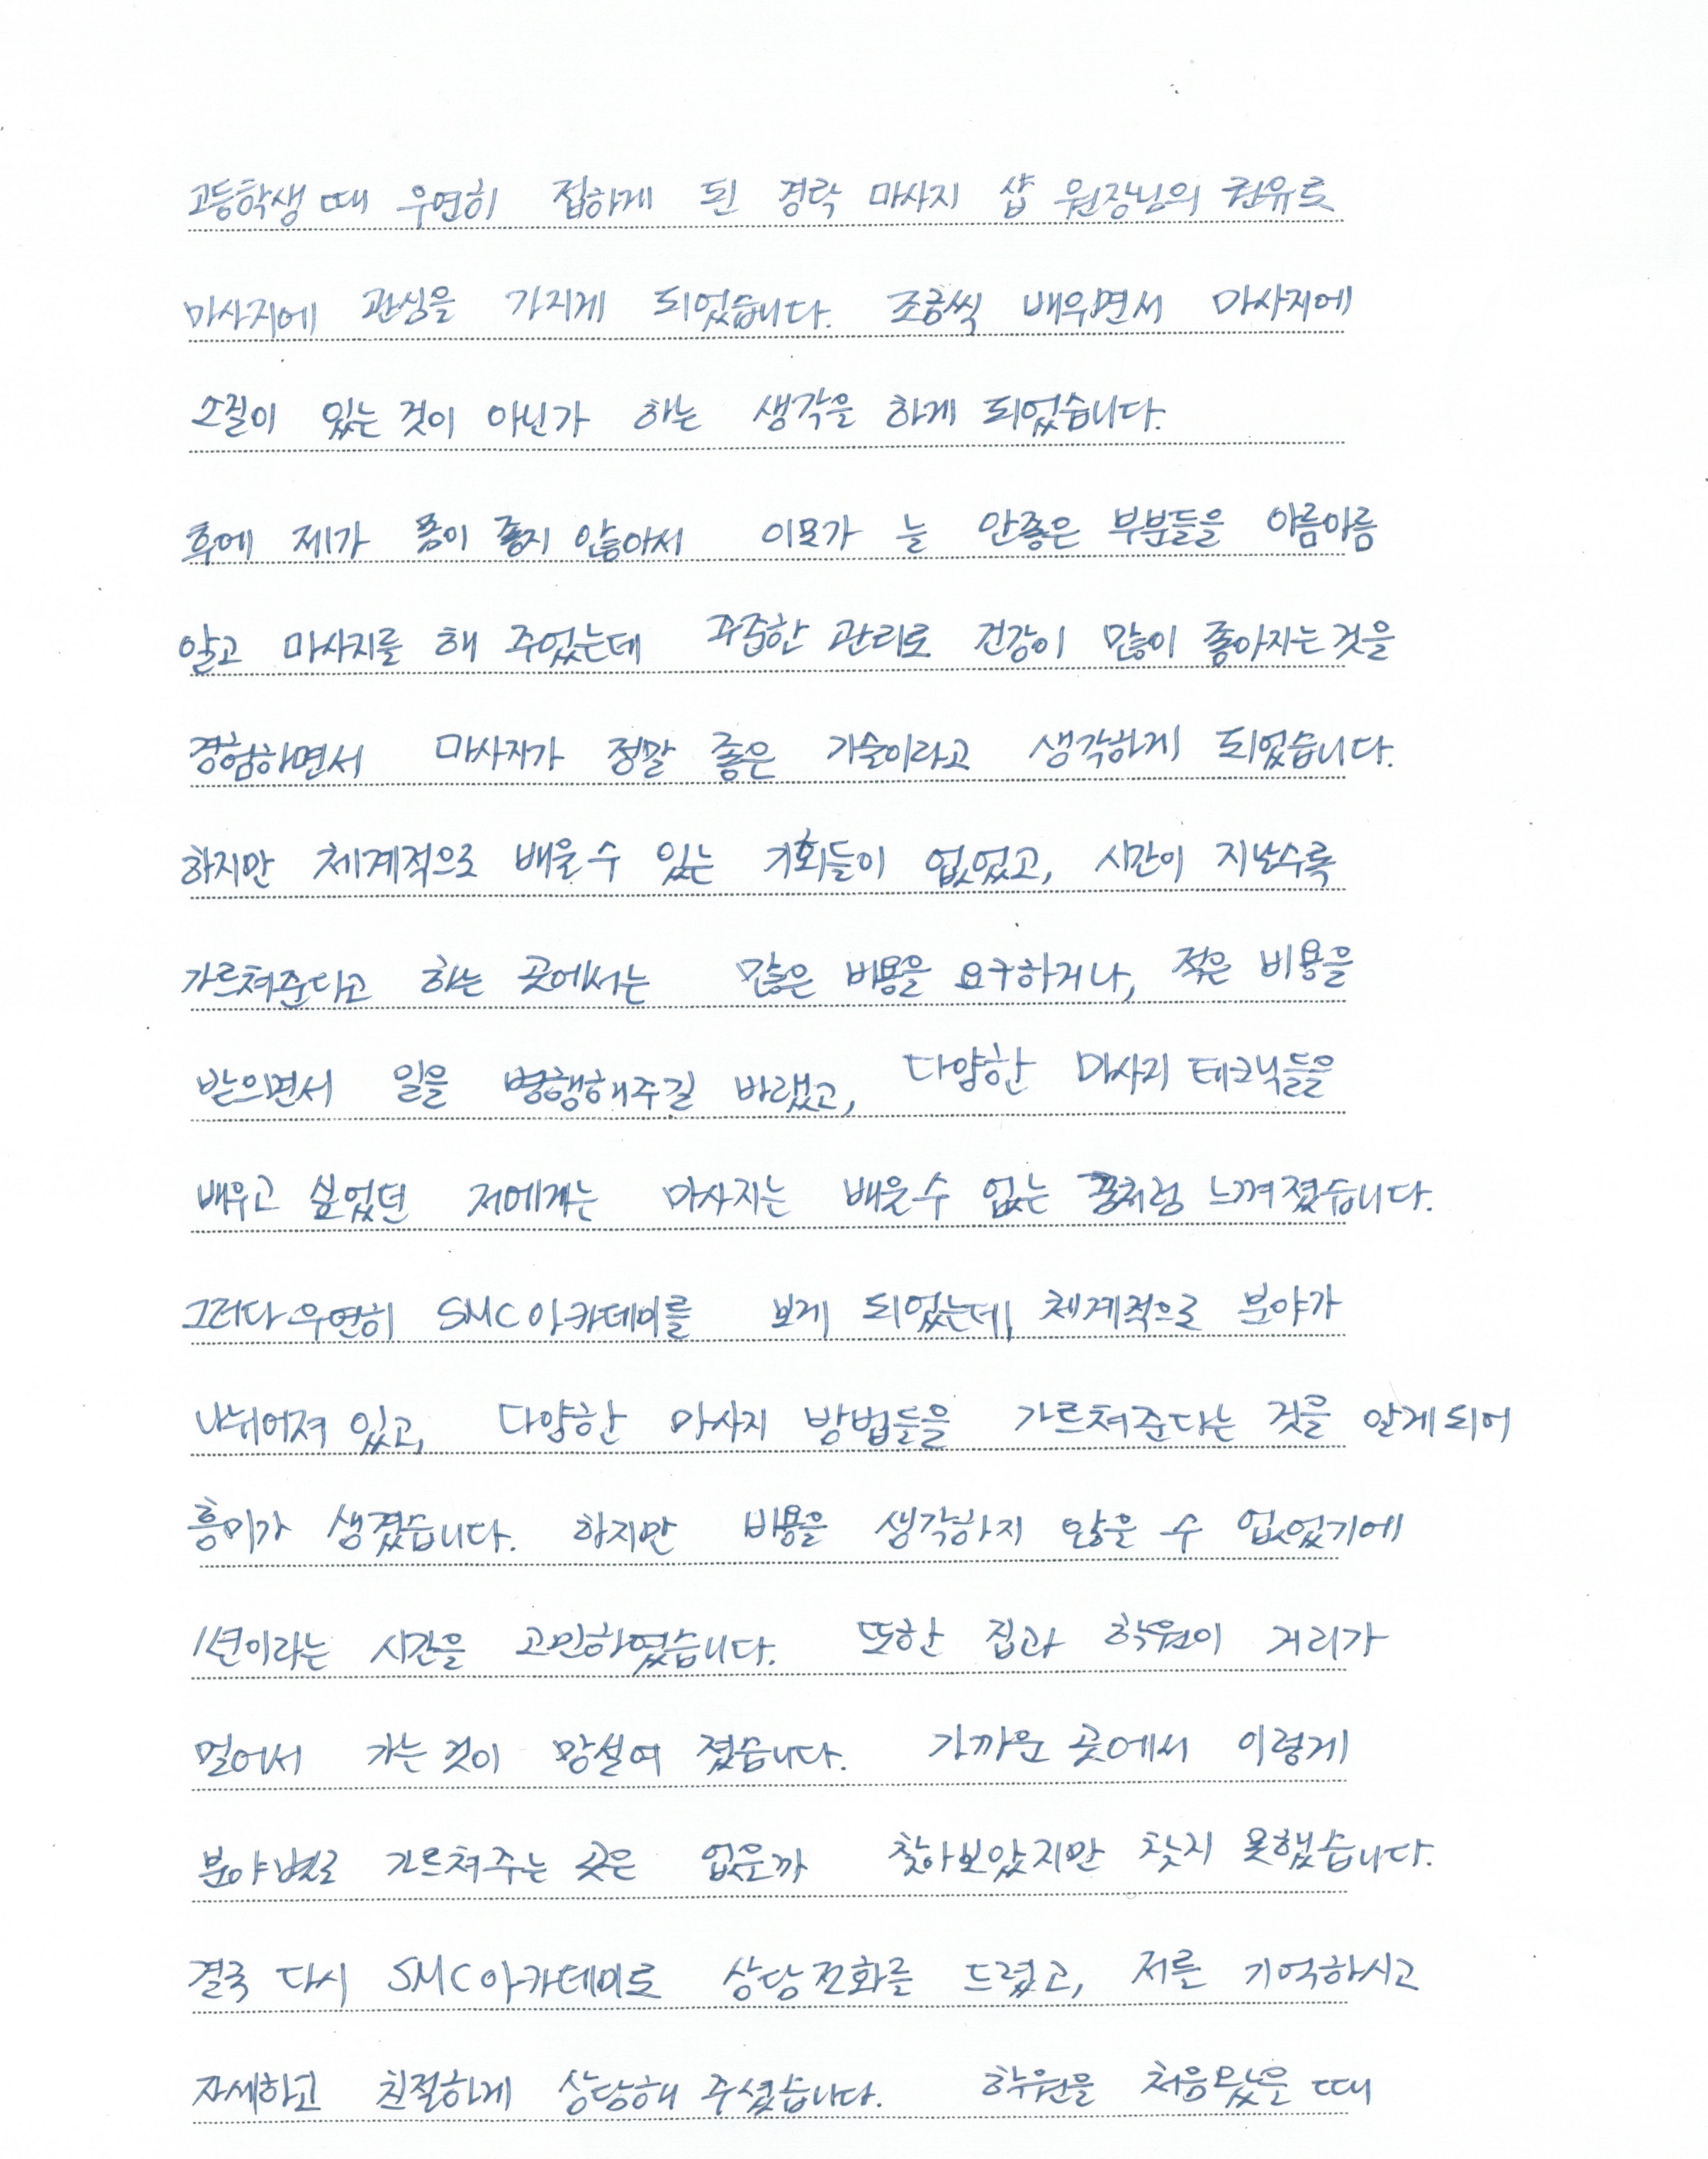 고등학생 때 우연히 접하게 된 경락 마사지 샵 원장님의 권유로
마사지에 관심을 가지게 되었습니다. 조금씩 배우면서 마사지에
소질이 있는 것이 아닌가 하는 생각을 하게 되었습니다.
후에 제가 몸이 좋지 않아서 이모가 늘 안좋은 부분들을 아름아름
알고 마사지를 해 주었는데 꾸준한 관리로 건강이 많이 좋아지는 것을
경험하면서 마사지가 정말 좋은 기술이라고 생각하게 되었습니다.
하지만 체계적으로 배울 수 있는 기회들이 없었고, 시간이 지날수록
가르쳐준다고 하는 곳에서는 많은 비용을 요구하거나, 적은 비용을
받으면서 일을 병행해주길 바랬고, 다양한 마사지 테크닉들을
배우고 싶었던 저에게는 마사지는 배울 수 없는 꿈처럼 느껴졌습니다.
그러다 우연히 SMC아카데미를 보게 되었는데, 체계적으로 분야가
나뉘어져 있고, 다양한 마사지 방법들을 가르쳐준다는 것을 알게 되어
흥미가 생겼습니다. 하지만 비용을 생각하지 않을 수 없었기에
1년이라는 시간을 고민하였습니다. 또한 집과 학원이 거리가
멀어서 가는 것이 망설여 졌습니다. 가까운 곳에서 이렇게
분야별로 가르쳐주는 곳은 없을까 찾아보았지만 찾지 못했습니다.
결국 다시 SMC아카데미로 상담전화를 드렸고, 저를 기억하시고
자세하고 친절하게 상담해 주셨습니다. 학원을 처음 왔을 때